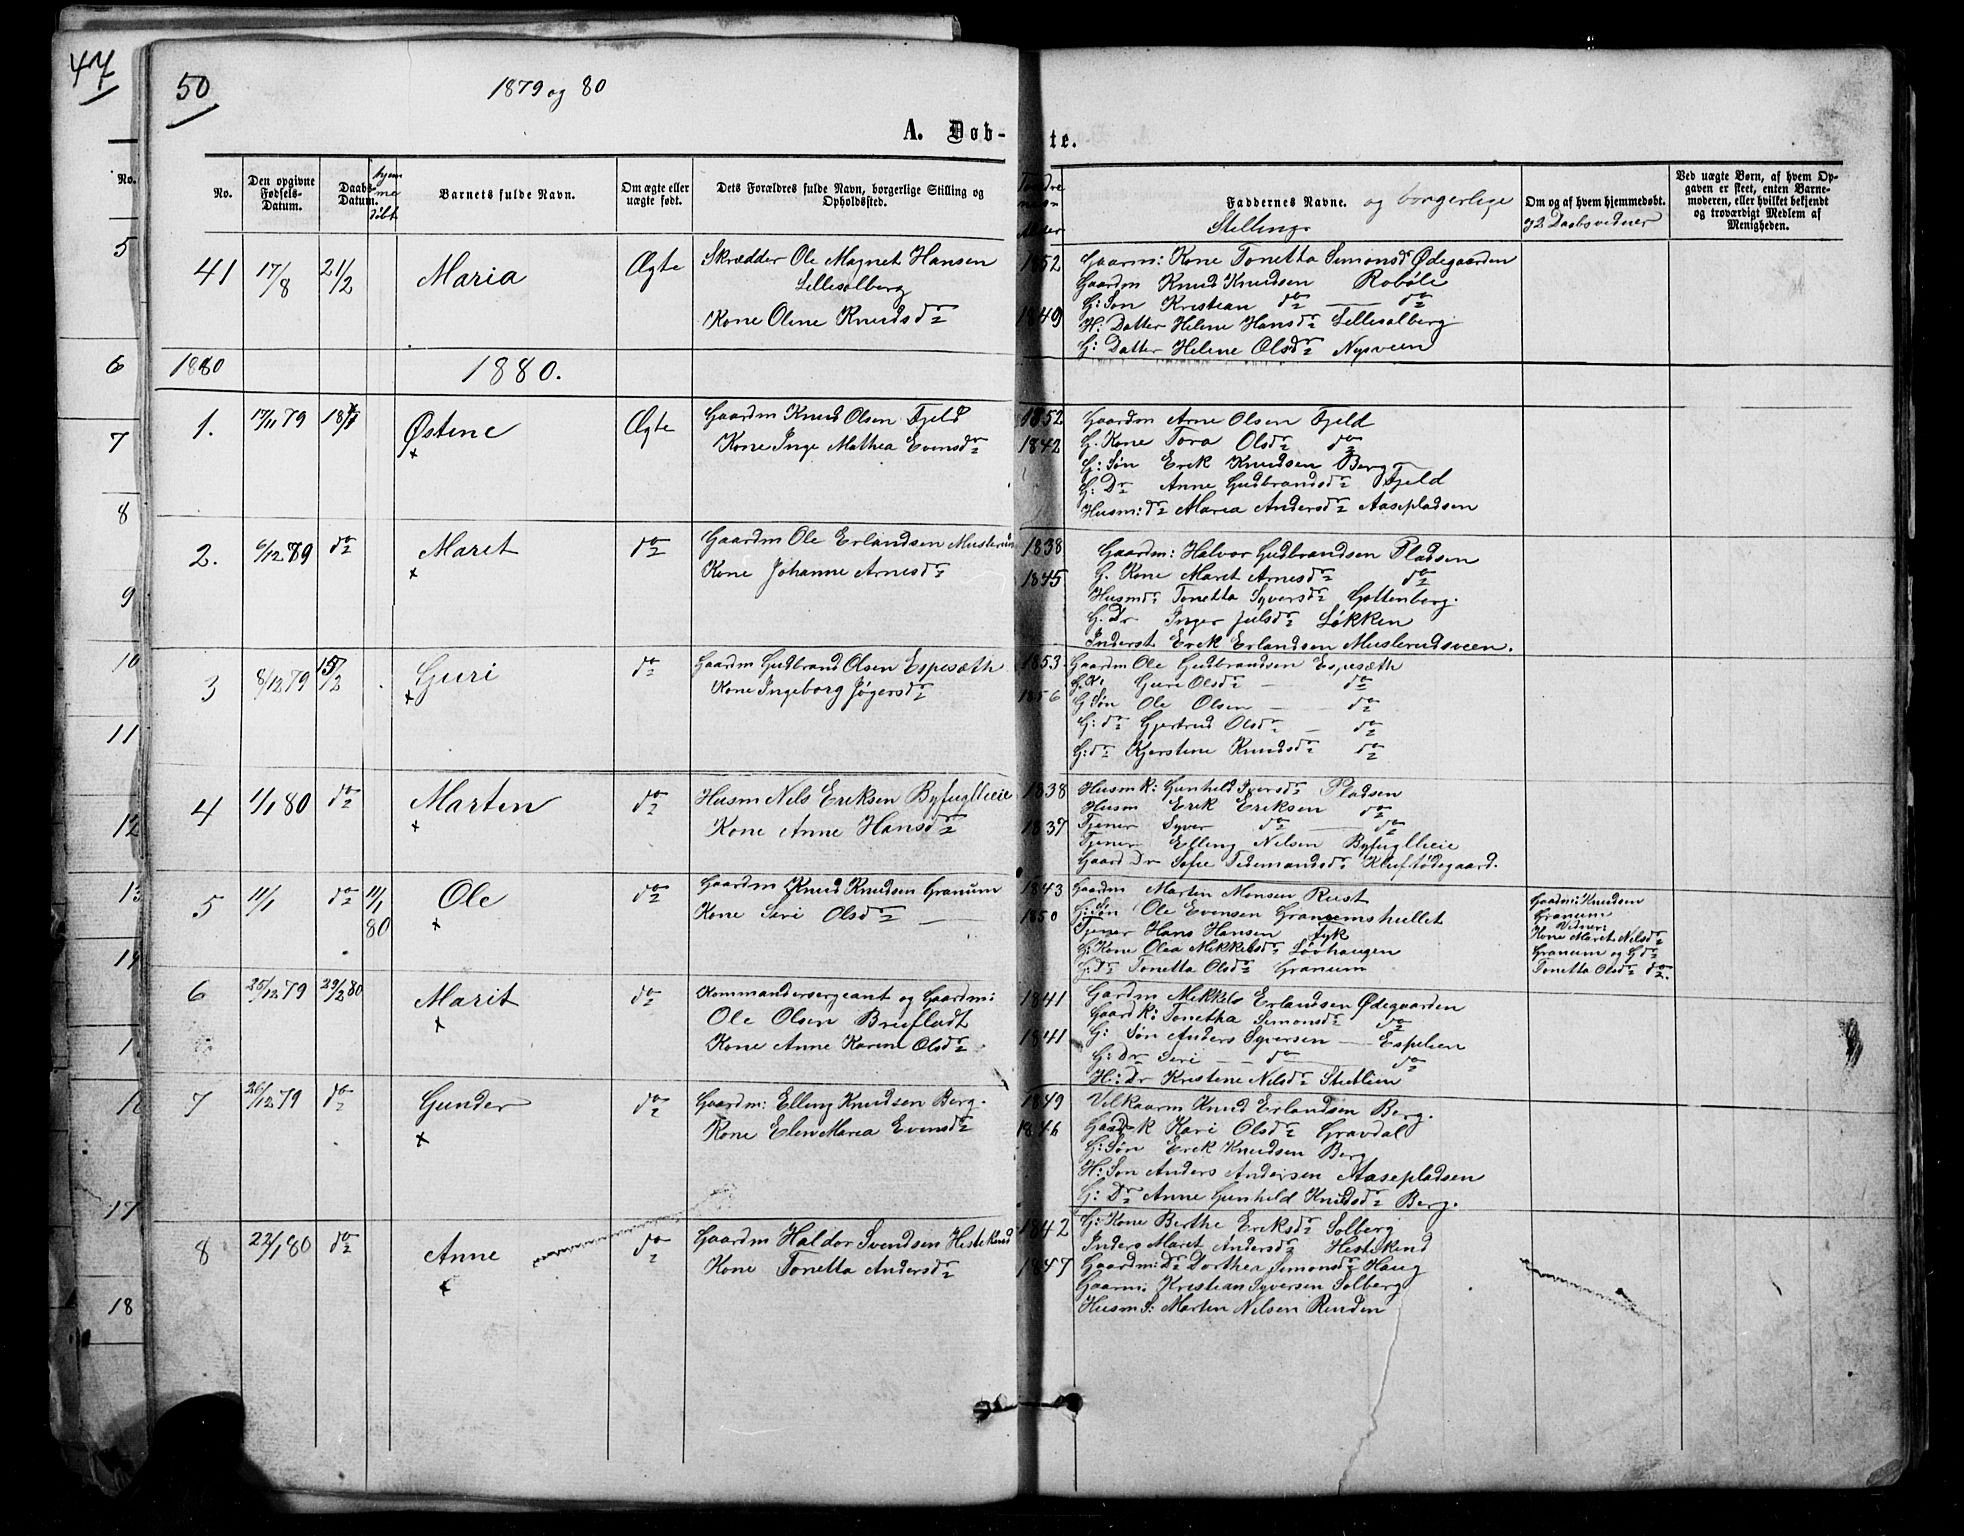 47
50
1879 og 80
A. Døb- te.
No.
5
6
7
8
9
10
11
12
13
14
16
17
18
No.
Den opgivne Fødsels-Datum.
Daabs-Datum.
hjemmedøbt
Barnets fulde Navn.
Om ægte eller uægte født.
Dets Forældres fulde Navn, borgerlige Stilling og Opholdssted.
Faddernes Navne. og borgerlige Stilling.
Om og af hvem hjemmedøbt. og 2 Daabsvidner
Ved uægte Børn, af hvem Opgaven er skeet, enten Barnemoderen, eller hvilket bekjendt og troværdigt Medlem af Menigheden.
41 17/8 21/2 Maria Ægte
Skrædder Ole Magnet Hansen
Lillesolberg
Kone Oline Knudsdr
1852
1849
Gaarm: Kone Tonetta Simonsdr Ødegaarden
Gaardm Knud Knudsen Robøle
G: Søn Kristian do — do
H: Datter Helene Hansdr Lillesolberg
G: Datter Helene Olsdr Nysveen
1880 1880.
1. 17/11 79 18/1 Østine Ægte
x
Gaardm Knud Olsen Fjeld
Kone Inge Mathea Evensdr
1852
1842
Gaardm Arne Olsen Fjeld
G. Kone Tora Olsdr do
G: Søn Erik Knudsen Berg
G: Dr Anne Gudbrandsdr Fjeld
Husm: dr Maria Andersdr Aasepladsen
2. 6/12 79 do Marit do
x
Gaardm Ole Erlandsen Muslerud
Kone Johanne Arnesdr
1838
1845
Gaardm: Halvor Gudbrandsen Pladsen
G. Kone Maret Arnesdr do
Husmdr Tonetta Syversdr Gottenborg.
G. Dr Inger Julsdr Løkken
Inderst Erik Erlandsen Muslerudsveen.
3 8/12 79 15/2 Guri do
x
Gaardm Gudbrand Olsen Espesæth
Kone Ingeborg Jøgersdr
1853
1856
Gaardm Ole Gudbrandsen Espesæth
G.K: Guri Olsdr — do
G Søn Ole Olsen — do
G: dr Gjertrud Olsdr — do
G: dr Kjerstine Knudsdr do
4 1/1 80 do Marten do
x
Husm Nels Eriksen Byfuglleie
Kone Anne Hansdr
1838
1837
Husm k: Gunhild Iversdr Pladsen
Husm Erik Eriksen do
Tjener Syver do — do
Tjener Elling Nilsen Byfuglleie
Gaard Dr Sofie Tidemandsdr Kluftødegaard.
5 11/1 do 11/1 80 Ole do
x
Gaardm Knud Knudsen Granum
Kone Siri Olsdr —
1843
1850
Gaardm Marten Monsen Rust
G: Søn Ole Evensen Granumshullet
Tjener Hans Hansen Fyk
G: Kone Olea Mikkelsdr Løvhaugen
G: Dr Tonetta Olsdr Granum
Gaardm: Knudsen
Granum
Vidner:
Kone Marit Nilsdr
Granum og G dr
Tonetta Olsdr do.
6 25/12 79 29/2 80 Marit do
x
Kommandersergeant og Gaardm:
Ole Olsen Brufladt
Kone Anne Karine Olsdr
1841
1841
Gardm Mikkels Erlandsen Ødegaarden
Gaard K: Tonetha Simonsdr do
G: Søn Anders Syversen — Espelien
G: Dr Siri — do do
H: Dr Kristine Nilsdr Stublien
7 26/12 79 do Gunder do
x
Gaardm: Elling Knudsen Berg.
Kone Elen Maria Evensdr
1849
1846
Vilkaarm Knud Erlandsen Berg.
Gaard K Kari Olsdr Gravdal
G: Søn Erik Knudsen Berg
H: Søn Anders Andersen Aasepladsen
G: Dr Anne Gunhild Knudsdr Berg.
8 22/1 80 do Anne do
x
Gaardm Haldor Svendsen Hestekind
Kone Tonetta Andersdr
1842
1847
G: Kone Berthe Eriksdr Solberg
Inders Maret Andersdr Hestekind
Gaardm: Dr Dorthea Simonsdr Haug
Gaarm: Kristian Syversen Solberg
Husm S: Marten Nilsen Rinden